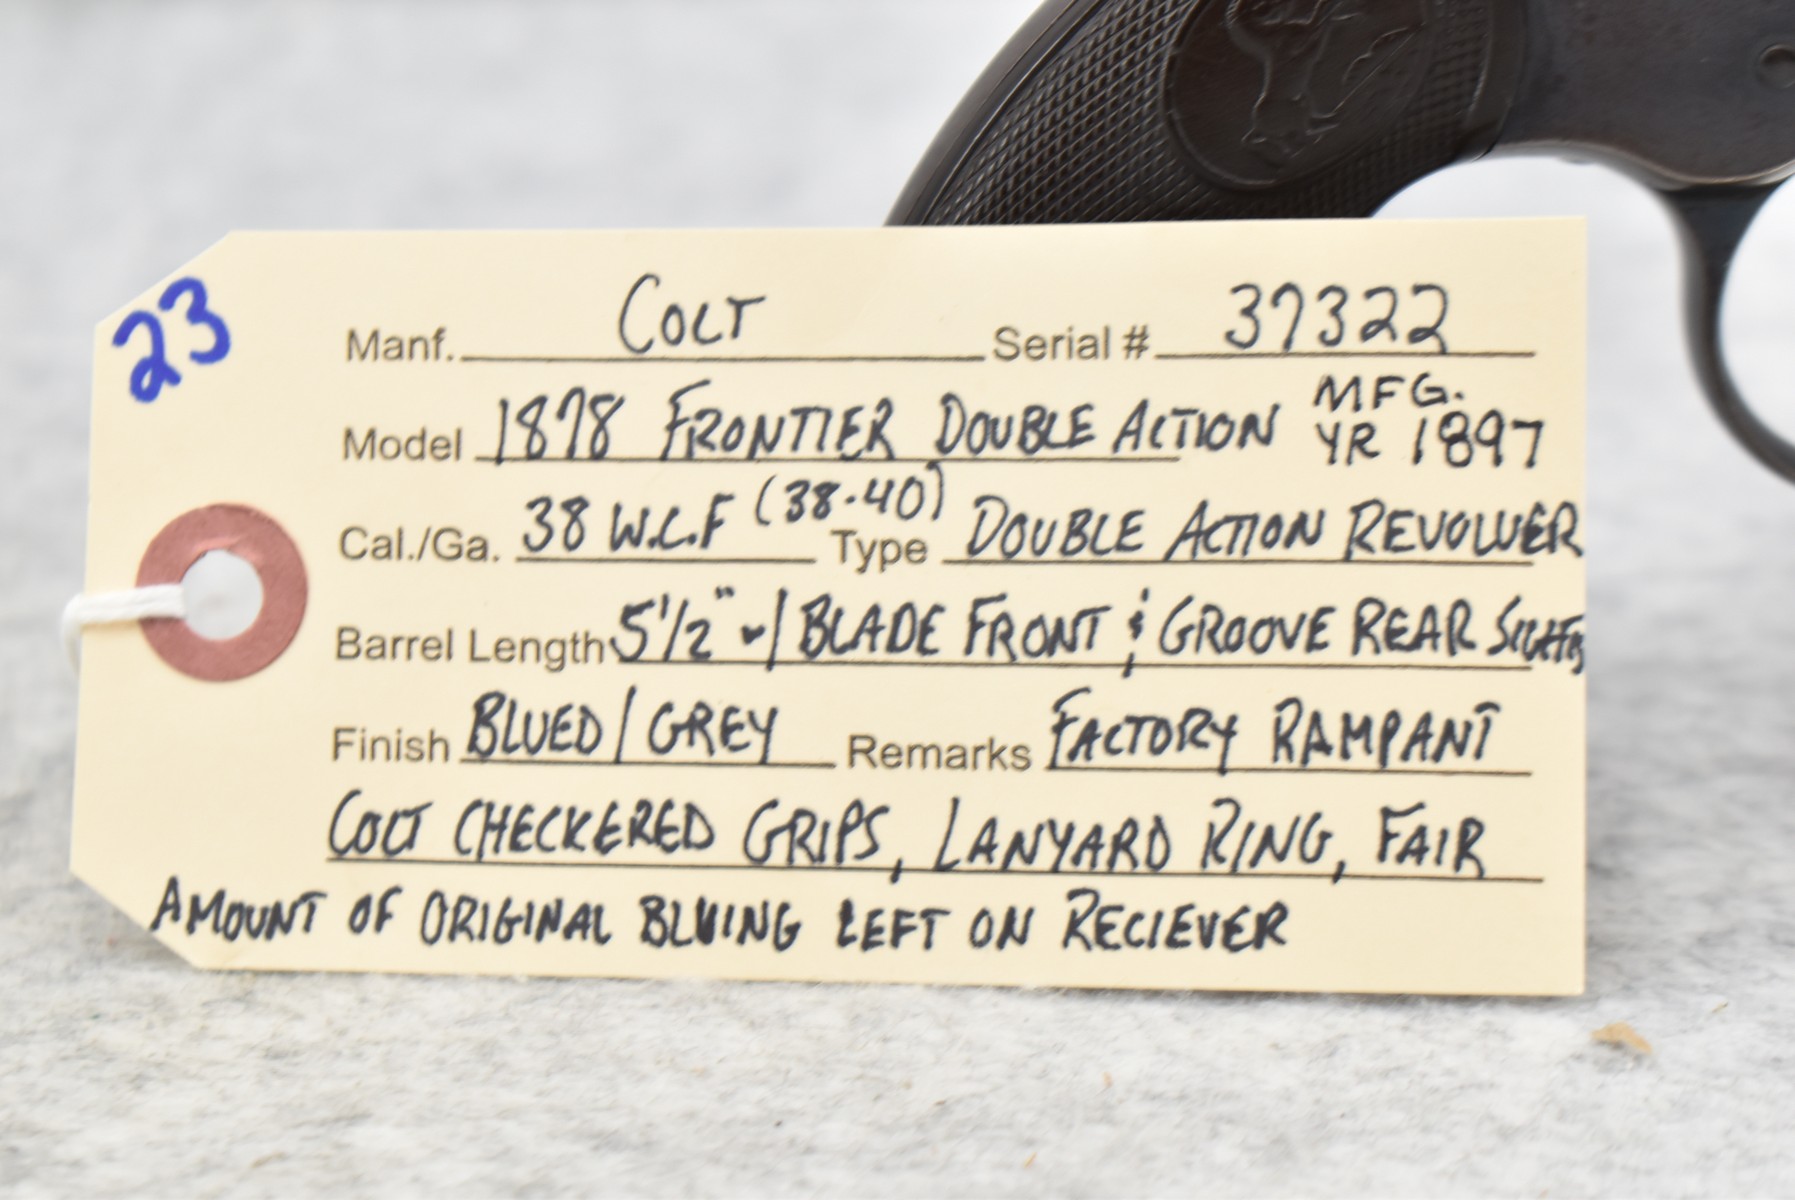 23
Manf. COLT Serial # 37322
Model 1878 FRONTIER DOUBLE ACTION MFG. YR 1897
Cal./Ga. 38 W.C.F (38-40) Type DOUBLE ACTION REVOLVER
Barrel Length 5 1/2" w/ BLADE FRONT & GROOVE REAR SIGHTS
Finish BLUED/GREY Remarks FACTORY RAMPANT
COLT CHECKERED GRIPS, LANYARD RING, FAIR
AMOUNT OF ORIGINAL BLUING LEFT ON RECIEVER